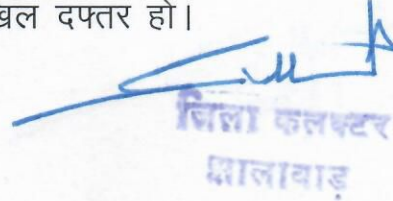 खल दफ्तर हो।
जिला कलक्टर
झालावाड़